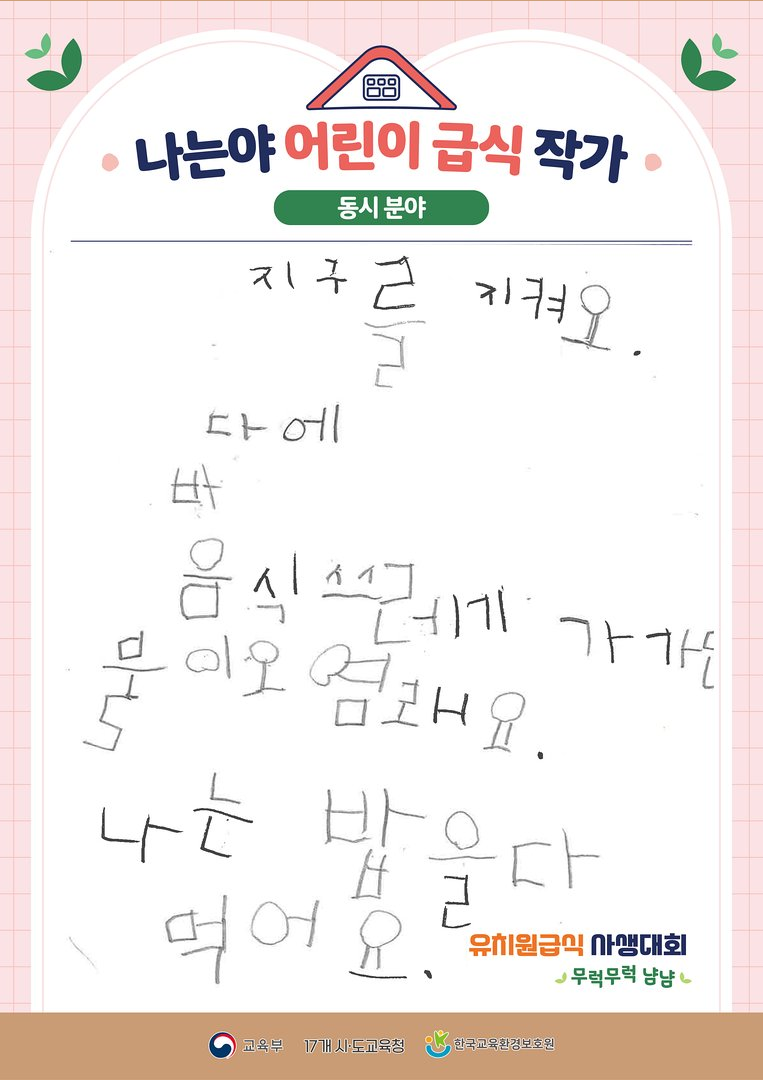 나는야 어린이 급식 작가
동시 분야
지구를 지켜요.
를
다에
바
음식쓰레기 가 가면
물이오염래요.
나는 밥을다
먹어요.
유치원급식 사생대회
무럭무럭 냠냠
교육부 17개 시·도교육청 한국교육환경보호원